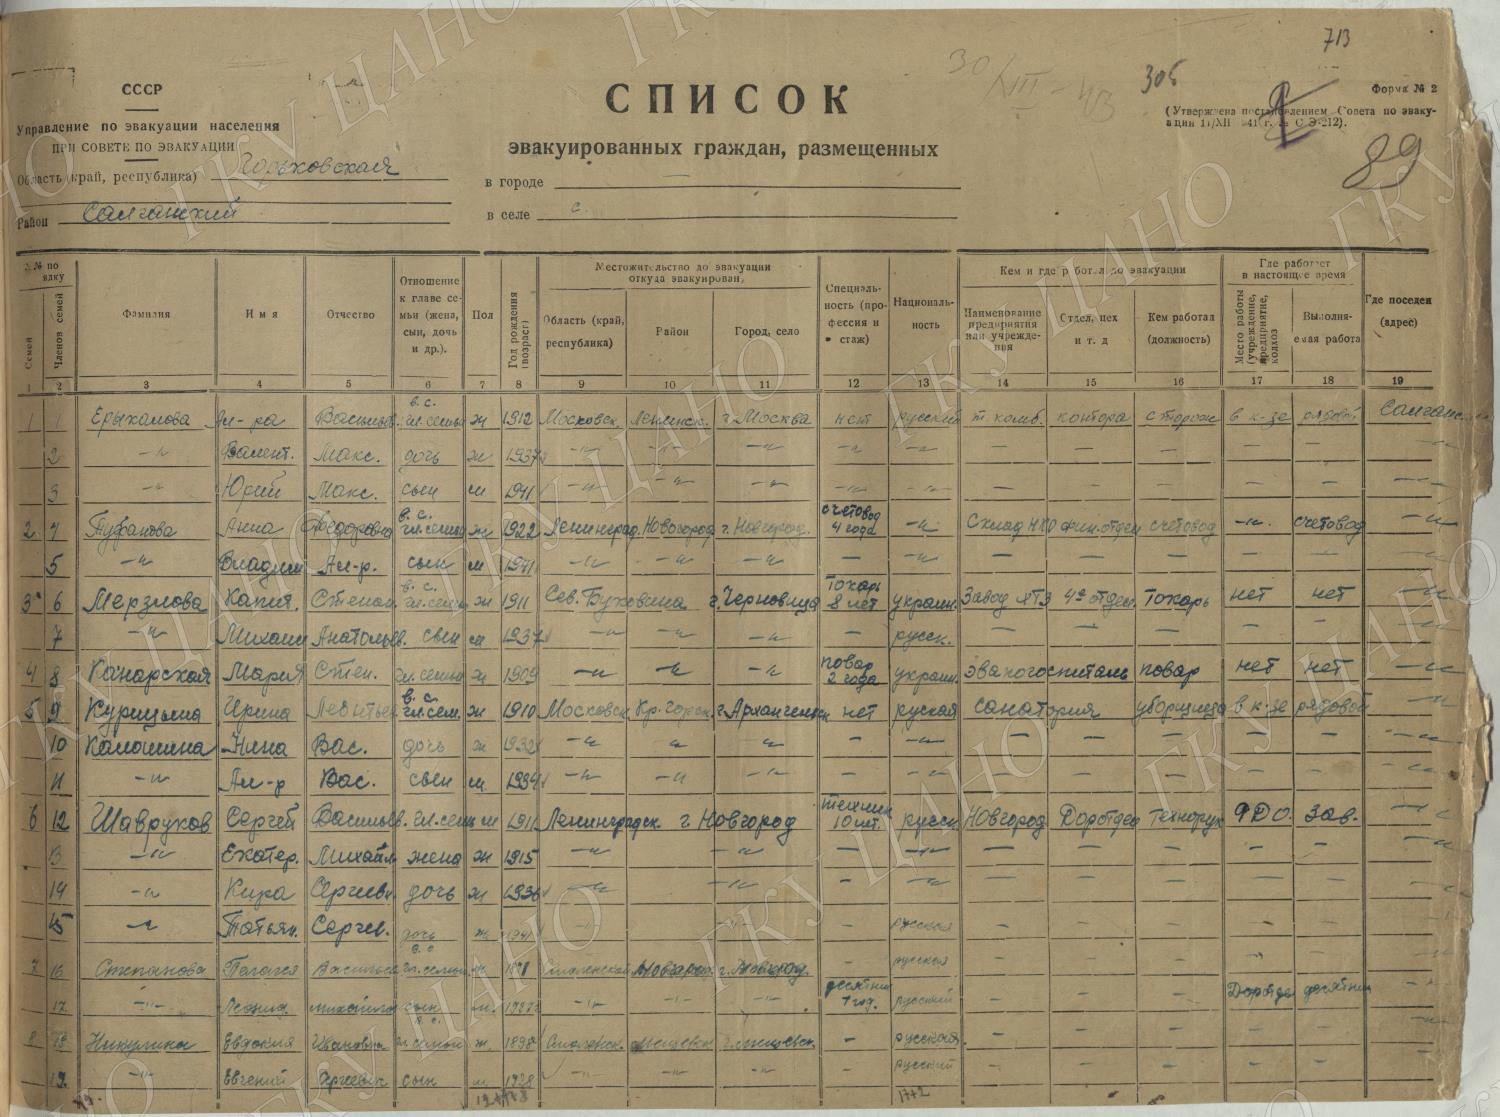 713
СССР
Управление по эвакуации населения
ПРИ СОВЕТЕ ПО ЭВАКУАЦИИ
Область (край, республика) Горьковская
Район Салганский
СПИСОК
эвакуированных граждан, размещенных
в городе —
в селе с.
30/XII - 43
306
Форма № 2
(Утверждена постановлением Совета по эваку-
ации 11/XII 41 г. № С Э-212).
89
№№ по
Семей
Членов семей
Фамилия
Имя
Отчество
Отношение
к главе се-
мьи (жена,
сын, дочь
и др.).
Пол
Год рождения
(возраст)
Местожительство до эвакуации
откуда эвакуирован,
Область (край,
республика)
Район
Город, село
Специаль-
ность (про-
фессия и
стаж)
Националь-
ность
Кем и где работал до эвакуации
Наименование
предприятия
или учрежде-
ния
Отдел, цех
и т. д
Кем работал
(должность)
Где работает
в настоящее время
Место работы
(учреждение,
предприятие,
колхоз
Выполня-
емая работа
Где поселен
(адрес)
1 2 3 4 5 6 7 8 9 10 11 12 13 14 15 16 17 18 19
1 1 Ерыкалова Ал-ра Васильев. в.с. гл. семьи ж 1912 Московск. Ленинск. г. Москва нет русский контора сторож в к-зе рядовой
2 -"- Валент. Макс. дочь ж 1937 -"- -"- -"- -"- — — —
3 -"- Юрий Макс. сын м 1941 -"- -"- -"- -"- -"- — — — — —
2 4 Туфанова Анна Федоровна в.с. гл. семьи ж 1922 Ленинград. Новгород г. Новгород. счетовод 4 года -"- Склад НКО фин. отдел счетовод -"- счетовод -"-
5 -"- Владим Ал-р. сын м 1941 -"- -"- -"- — -"- — — — — —
3 6 Мерзлова Капит. Степан. в.с. гл. семьи ж 1911 Сев. Буковина г. Черновицы токарь 8 лет украин. Завод 4й отдел. токарь нет нет -"-
7 -"- Михаил Анатольев. сын м 1937 -"- -"- -"- — русск. — — — — —
4 8 Канарская Мария Степ. гл. семьи ж 1909 -"- -"- -"- повар 2 года украин. эвакогоспиталь повар нет нет -"-
5 9 Курицына Ирина Леонтьев. в.с. гл. сем. ж 1910 Московск. Кр. Горск. г. Архангельск нет руская санатория уборщица в к-зе рядовой -"-
10 Калошина Нина Вас. дочь ж 1932 -"- -"- -"- — -"- — — — — —
11 -"- Ал-р Вас. сын м 1934 -"- -"- -"- — -"- — — — — —
6 12 Шавруков Сергей Васильев. гл. семьи м 1911 Ленинградск. г Новгород техник 10 лет. русск. Новгород Доротдел Технорук ФДО. Зав. -"-
13 -"- Екатер. Михайл. жена ж 1915 -"- -"- — -"- — — — — —
14 -"- Кира Сергеевн. дочь ж 1936 -"- -"- — -"- — — — — —
15 -"- Татьян. Сергев. дочь ж 1941 -"- -"- — русская — — — — —
7 16 Степанова Пелагея Васильев. в.с. гл. семьи ж Новгород г. Новгород. — русская — — — — —
17 -"- Леонид. Михайлов. сын м. -"- -"- -"- десятник 1 год. русский — — — Доротдел десятник
8 18 Никулина Евдокия Ивановна в.с. гл. семьи ж. 1898 Смоленск. — русская — — — — —
19. -"- Евгений Сергеевич сын м 1928 -"- -"- -"- — русский — — — — —
19.
17+2
ГКУ ЦАНО